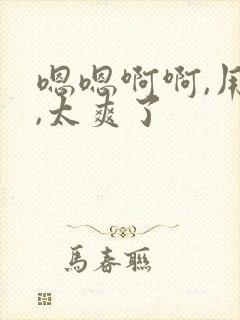 嗯嗯啊啊,用
,太爽了
馬春聯